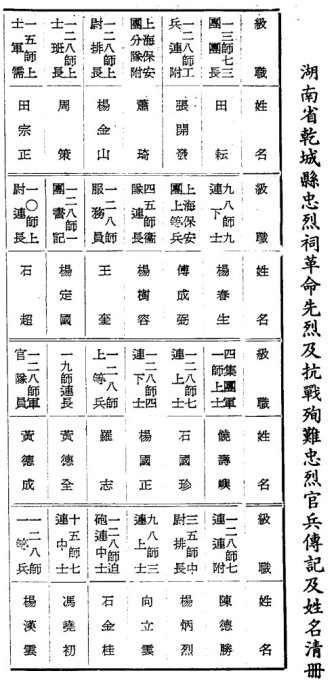 湖南省乾城縣忠烈祠革命先烈及抗戰殉難忠烈官兵傳記及姓名清冊
級職 姓名
一三師七三團團長 田耘
一二八師工兵連附 張開發
上海保安團分隊附 蕭琦
一二八師上尉排長 楊金山
一二八師上士班長 周策
一五師上士軍需 田宗正
級職 姓名
九八師九連下士 楊春生
上海保安團上等兵 傅成弼
四五師衞隊連長 楊樹容
一二八師服務員 王奎
一二八師一團書記 楊定國
一〇師上尉連長 石超
級職 姓名
四集團軍一師上士 饒壽嶼
一二八師七連上士 石國珍
一二八師四連下士 楊國正
一二八師上等兵 羅志
一九師連長 黃德全
一二八師軍官隊員 黃德成
級職 姓名
一二八師七連連附 陳德勝
三五師中尉排長 楊炳烈
九八師三連上士 向立雲
一二八師迫砲連中士 石金桂
十五師七連中士 馮堯初
一二八師一等兵 楊漢雲